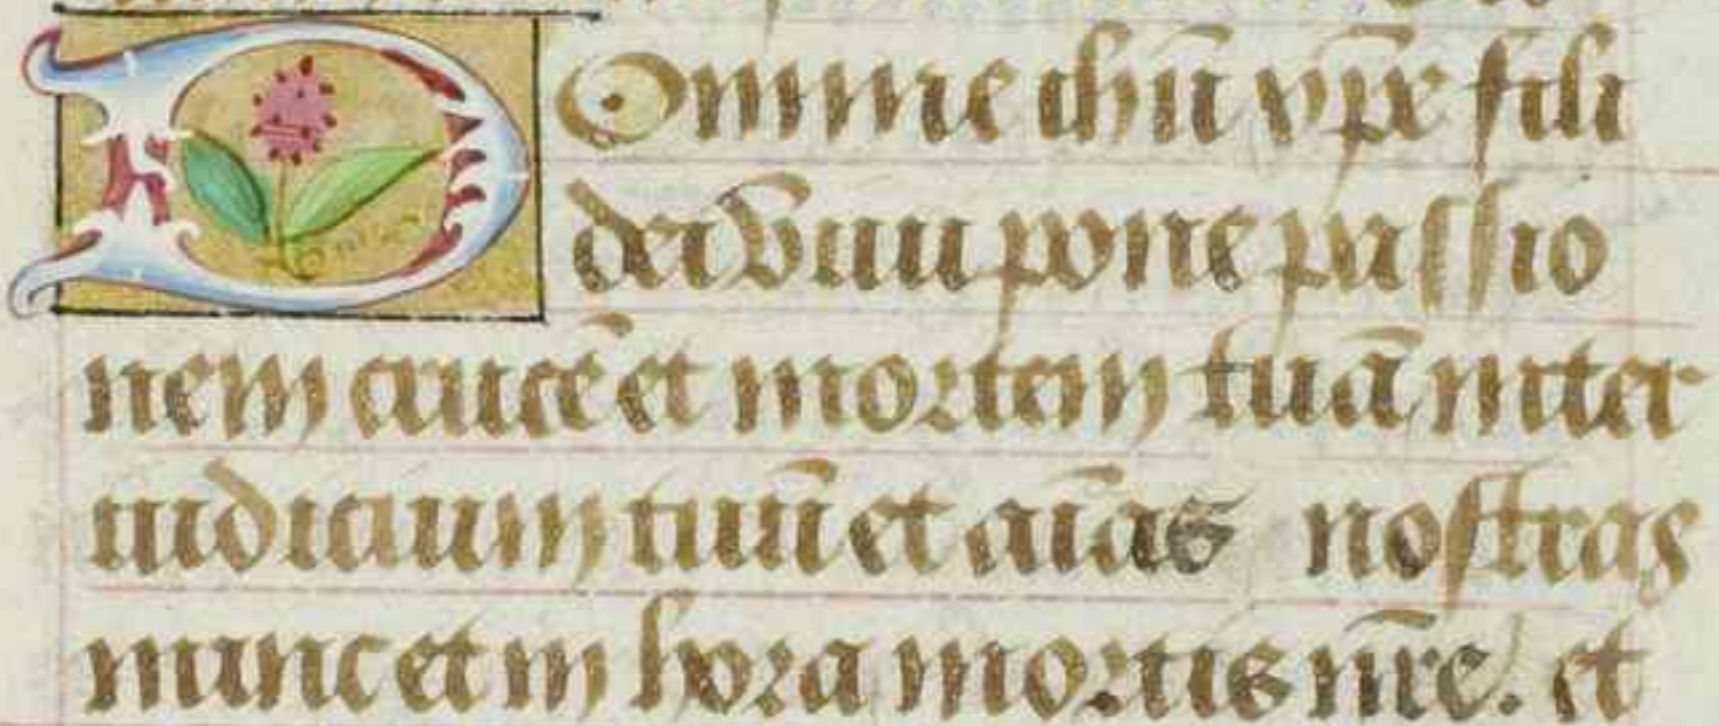 Domine ihũ xp̃e fili
dei viui pone passio
nem crucẽ et mortem tuã inter
iudicium tuũ et aĩas nostras
nunc et in hora mortis nr̃e. et